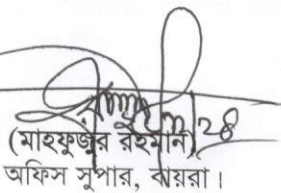 (মাহফুজুর রহমান)
অফিস সুপার, বায়রা।